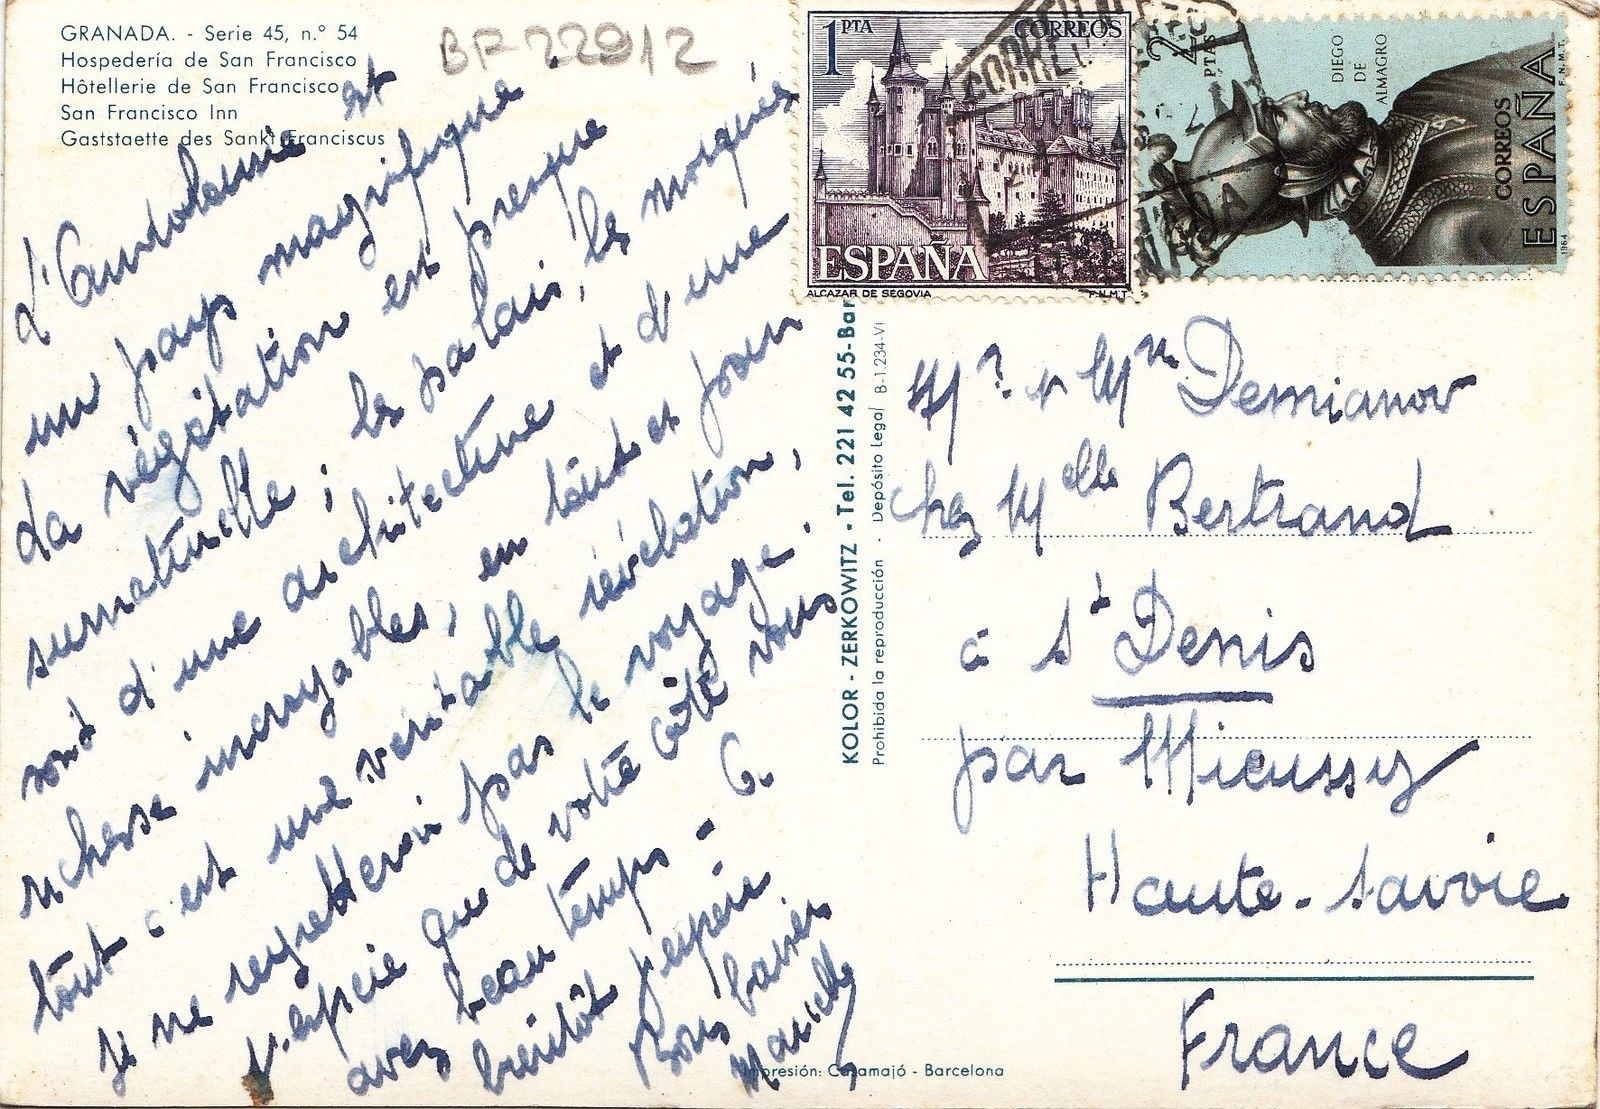 GRANADA. - Serie 45, n.° 54
Hospedería de San Francisco
Hôtellerie de San Francisco
San Francisco Inn
Gaststaette des Sankt Franciscus
BF 22912
L'Andalousie est
un pays magnifique.
La végétation est presque
surnaturelle ; les palais, les mosquées
sont d'une architecture et d'une
richesse incroyables, en tout et pour
tout c'est une véritable révélation,
je ne regretterai pas le voyage.
J'espère que de votre côté vous
avez beau temps - 
bientôt j'espère
Bons baisers
Marcelle
1 PTA CORREOS
ESPAÑA
ALCAZAR DE SEGOVIA F.N.M.T.
2 PTAS
DIEGO DE ALMAGRO
CORREOS
ESPAÑA
F.N.M.T.
1964
KOLOR - ZERKOWITZ - Tel. 221 42 55-Bar
Prohibida la reproducción - Depósito Legal B-1.234-VI
Mr & Mme Demianov
chez Melle Bertrand
à St Denis
par Mieussy
Haute-Savoie
France
Impresión: Casamajó - Barcelona